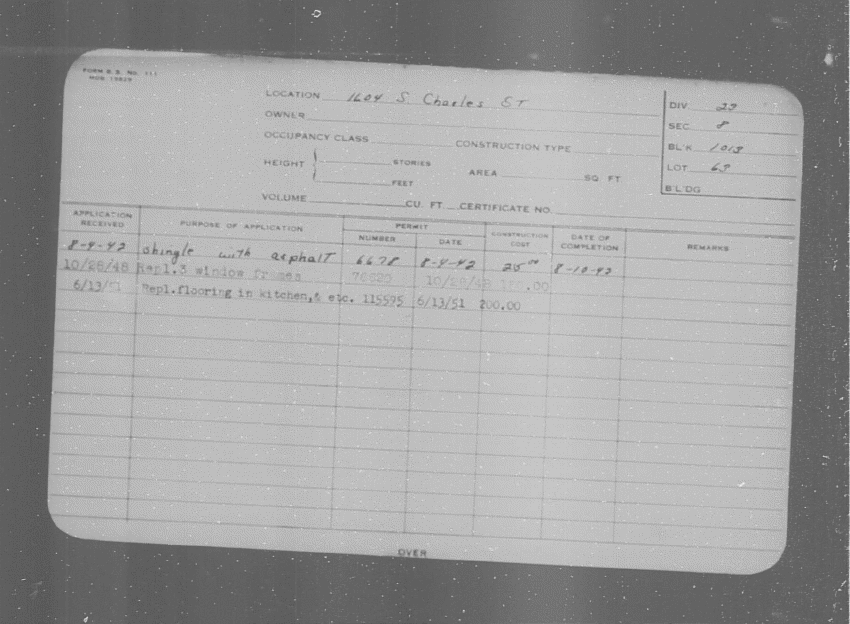 FORM B. S. NO. 111
LOCATION 1604 S Charles ST
OWNER
OCCUPANCY CLASS CONSTRUCTION TYPE
HEIGHT STORIES AREA SQ FT
FEET
VOLUME CU. FT. CERTIFICATE NO.
DIV 23
SEC 8
BL'K 1013
LOT 63
B'L'DG
APPLICATION RECEIVED PURPOSE OF APPLICATION PERMIT NUMBER DATE CONSTRUCTION COST DATE OF COMPLETION REMARKS
8-4-42 shingle with asphalt 6678 8-4-42 25 8-10-42
10/28/48 Repl.3 window frames 10/28/48
6/13/51 Repl.flooring in kitchen,& etc. 115595 6/13/51 200.00
OVER